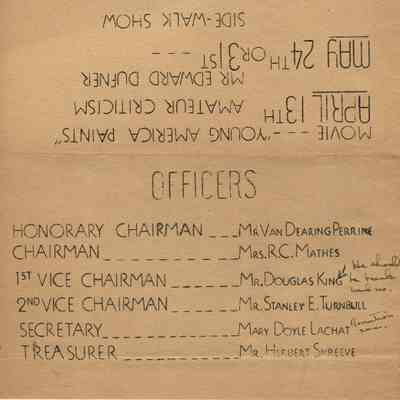 MOVIE --- "YOUNG AMERICA PAINTS"
APRIL 13TH AMATEUR CRITICISM
MR EDWARD DUFNER
MAY 24TH OR 31ST ---
SIDE-WALK SHOW
OFFICERS
HONORARY CHAIRMAN ___ MR VAN DEARING PERRINE
CHAIRMAN __________ MRS. R.C. MATHES
1ST VICE CHAIRMAN ______ MR. DOUGLAS KING
2ND VICE CHAIRMAN ______ MR. STANLEY E. TURNBULL
SECRETARY____________ MARY DOYLE LACHAT
TREASURER___________ MR. HERBERT SHREEVE